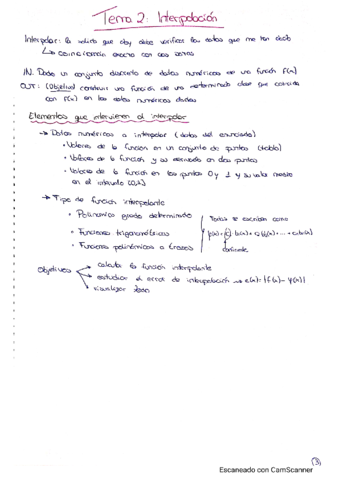 Tema 2: Interpolación
Interpolar: la salida que doy debe verificar los datos que me han dado
↳ coincidencia exacta con los datos
IN: Dado un conjunto discreto de datos numéricos de una función f(x)
OUT: (Objetivo) construir una función de una determinada clase que coincida
con f(x) en los datos numéricos dados
Elementos que intervienen al interpolar
→ Datos numéricos a interpolar (datos del enunciado)
• Valores de la función en un conjunto de puntos (tabla)
• Valores de la función y su derivada en dos puntos
• Valores de la función en los puntos 0 y 1 y su valor medio
en el intervalo (0,1)
→ Tipo de función interpolante
• Polinomios grado determinado
• Funciones trigonométricas
• Funciones polinómicas a trozos
Todas se escriben como
coeficiente
Objetivos
calcular la función interpolante
estudiar el error de interpolación → e(x) = |f(x) - φ(x)|
visualizar
(3)
Escaneado con CamScanner